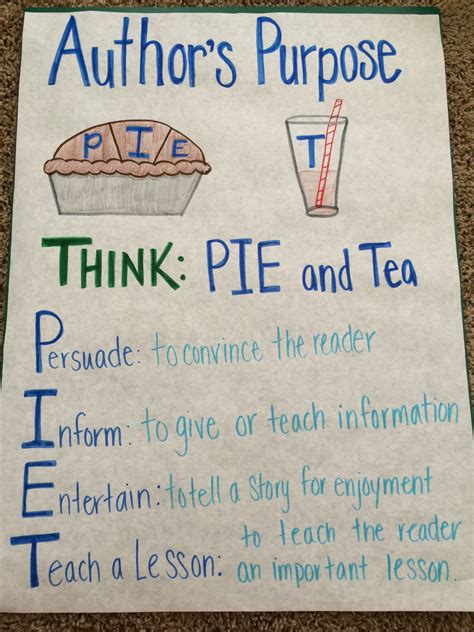 Author's Purpose
PIE T
THINK: PIE and Tea
Persuade: to convince the reader
Inform: to give or teach information
Entertain: to tell a story for enjoyment
Teach a Lesson: to teach the reader
an important lesson.